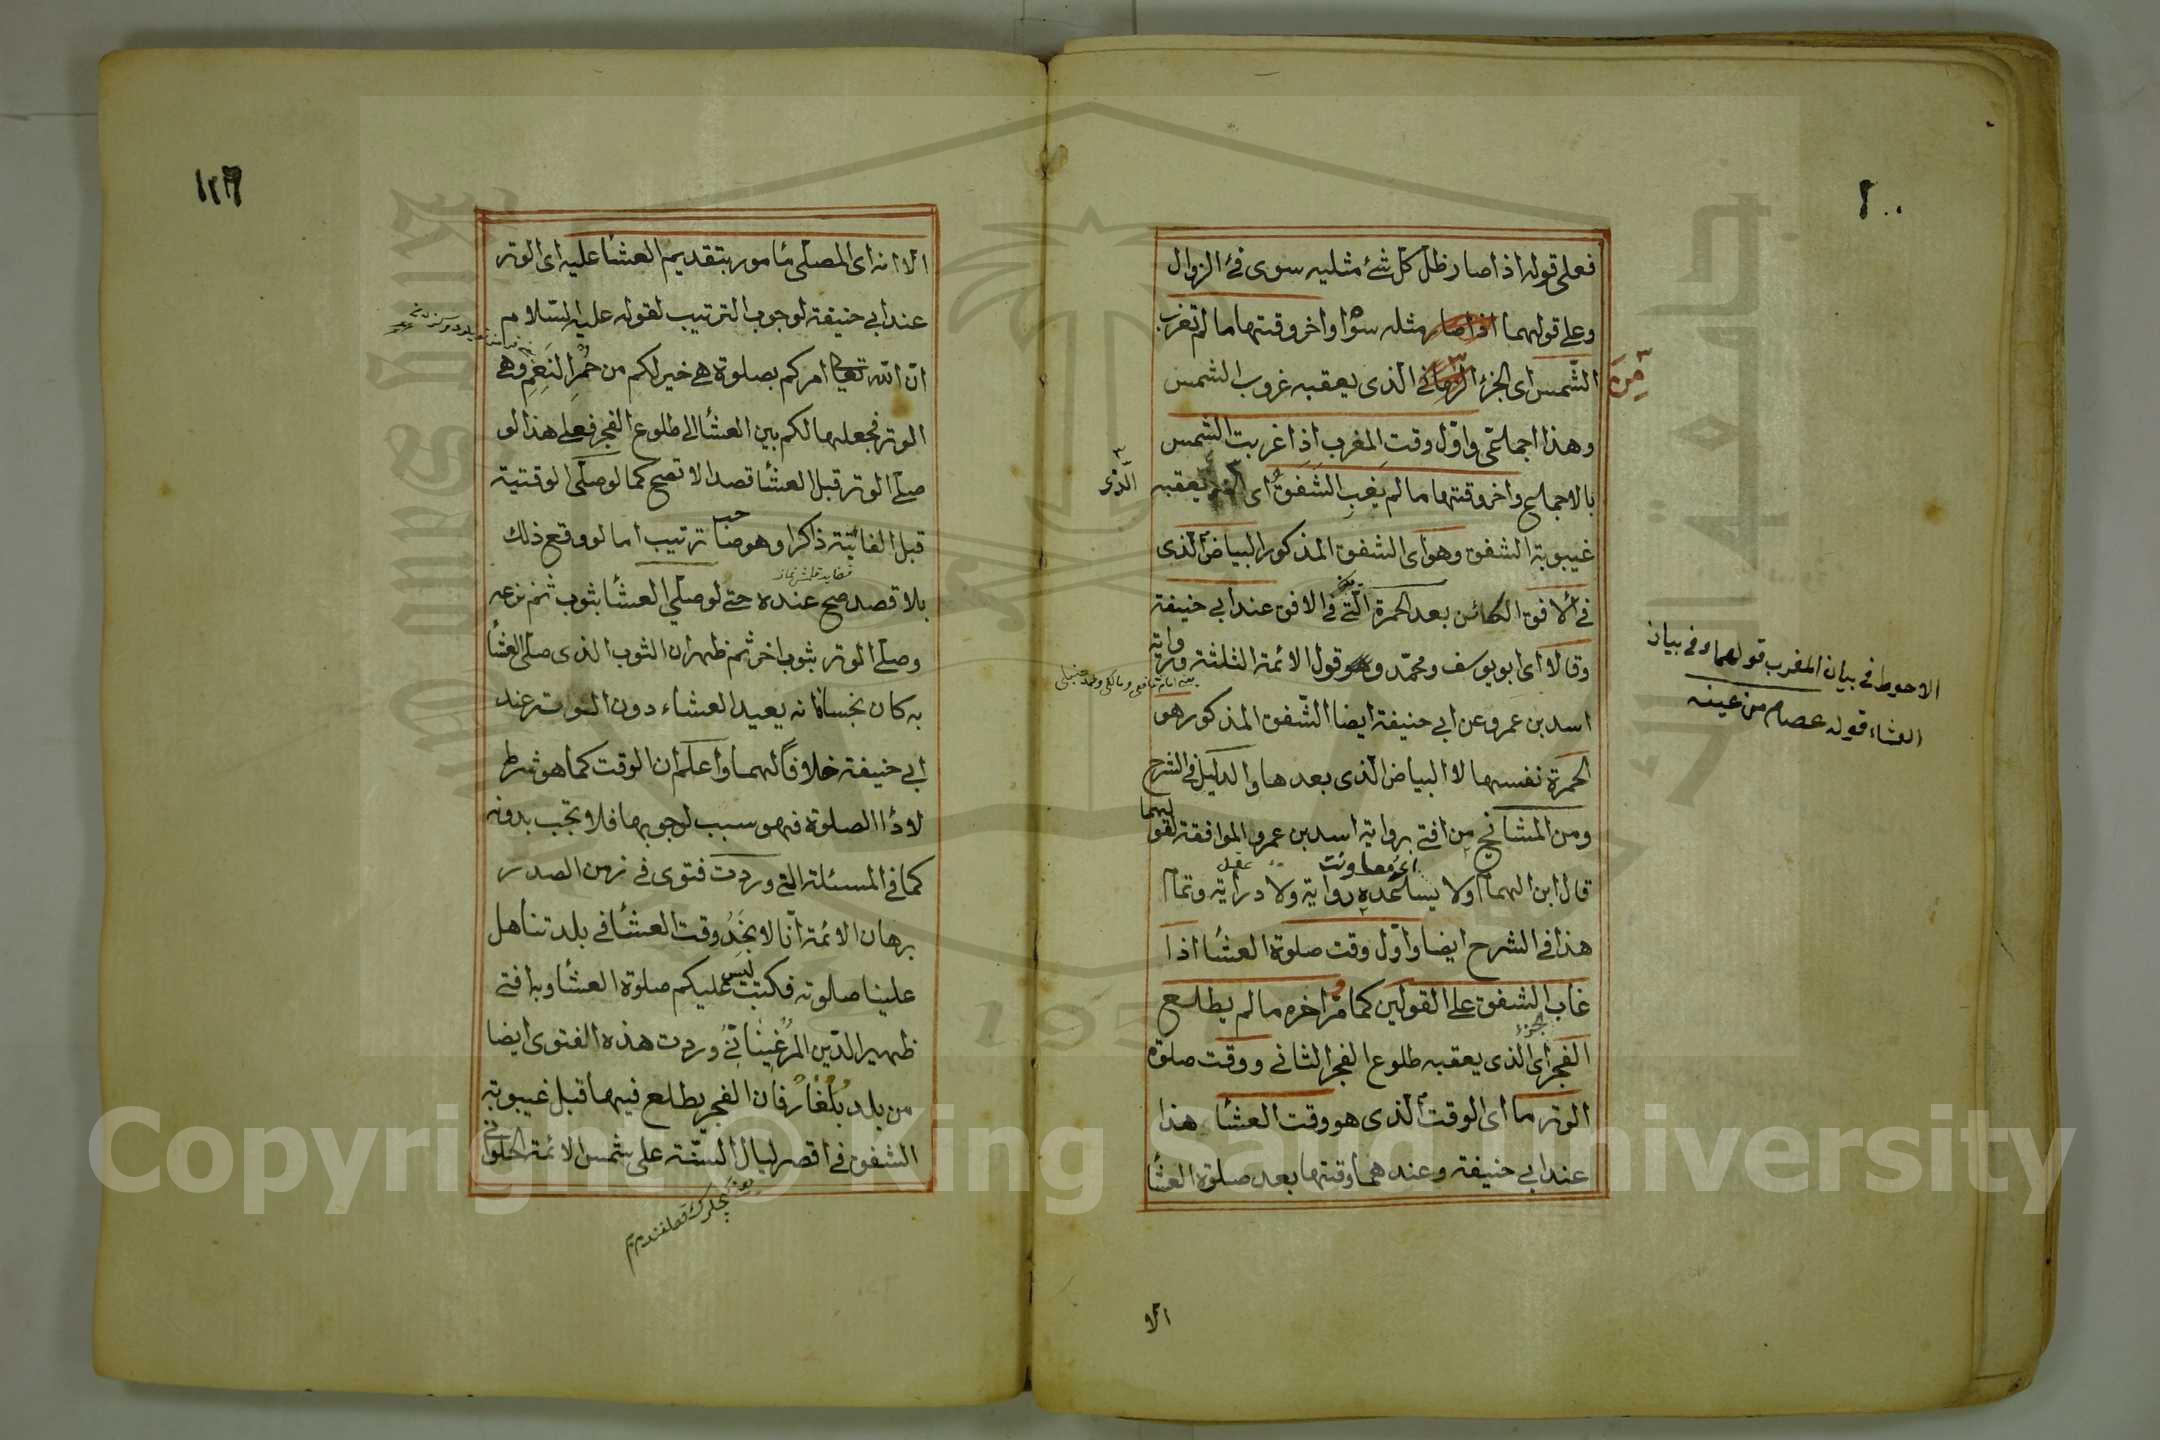 فعلى قوله اذا صار ظل كل شئ مثليه سوى فئ الزوال
وعلى قولهما اذا صار مثله سواه واخر وقتها ما لم تغرب
الشمس اى الجزء الذى يعقبه غروب الشمس
وهذا اجماعى واول وقت المغرب اذا غربت الشمس
بالاجماع واخر وقتها ما لم يغب الشفق اى يعقبه
الذى
غيبوبة الشفق وهو اى الشفق المذكور البياض الذى
فى الافق الكائن بعد الحمرة التى فى الافق عند ابي حنيفة
وقالا اى ابو يوسف ومحمد وهو قول الائمة الثلثة ورواية
اسد بن عمرو عن ابي حنيفة ايضا الشفق المذكور هو
الحمرة نفسها لا البياض الذى بعدها والدليل فى الشرح
ومن المشايخ من افتى برواية اسد بن عمرو الموافقة لقولهما
قال ابن الهمام ولا يساعده رواية ولا دراية وتمام
هذا فى الشرح ايضا واول وقت صلوة العشا اذا
غاب الشفق على القولين كما مر اخره ما لم يطلع
الفجر اى الجزء الذى يعقبه طلوع الفجر الثانى ووقت صلوة
الوتر ما اى الوقت الذى هو وقت العشا هذا
عند ابي حنيفة وعندهما وقتها بعد صلوة العشا
الاحوط فى بيان المغرب قولهما وفى بيان
العشاء قوله عصام من عينه
الا
الا انه اى المصلى مأمور بتقديم العشا عليه اى الوتر
عند ابي حنيفة لوجوب الترتيب لقوله عليه السلام
ان الله تعالى امركم بصلوة هى خير لكم من حُمْرِ النَعَمِ وهى
الوتر فجعلها لكم بين العشا الى طلوع الفجر فعلى هذا لو
صلى الوتر قبل العشا قصدا لا تصح كما لو صلى الوقتية
قبل الفائتة ذاكرا وهو صاحب ترتيب اما لو وقع ذلك
بلا قصد صح عنده حتى لو صلى العشا بثوب ثم نزعه
وصلى الوتر بثوب اخر ثم ظهر ان الثوب الذى صلى العشا
به كان نجسا فانه يعيد العشاء دون الوتر عند
ابي حنيفة خلافا لهما واعلم ان الوقت كما هو شرط
لادٔا الصلوة فهو سبب لوجوبها فلا تجب بدونه
كما فى المسئلة التى وردت فتوى فى زمن الصدر
برهان الائمة انا لا نجد وقت العشا فى بلدتنا هل
علينا صلوته فكتب ليس عليكم صلوة العشا وبه افتى
ظهير الدين المرغينانى وردت هذه الفتوى ايضا
من بلد بُلْغار فان الفجر يطلع فيها قبل غيبوبة
الشفق فى اقصر ليال السنة على شمس الائمة الحلوانى